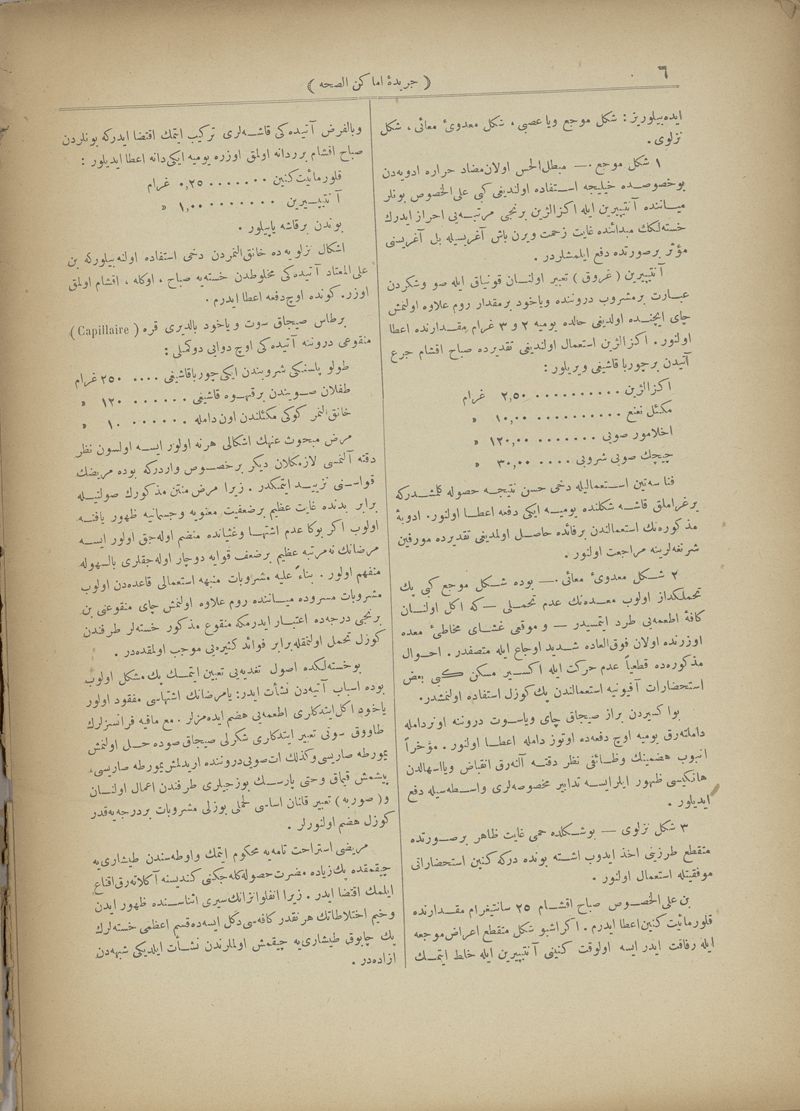 ٦
( جریدهٔ اماکن الصحه )
ایده‌بیلوریز : شکل موجع ویا عصبی ، شکل معدویٔ معائی ، شکل
نزلوی .
١ شکل موجع .— مبطل‌الحس اولان مضاد حراره ادویه‌دن
بوخصوصده خیلیجه استفاده اولندیغی کبی علی‌الخصوص بونلر
میاننده آنتیپیرین ایله اکزالژین برنجی مرتبه‌یی احراز ایدرك
خسته‌لکك مبدأنده غایت زحمت ویرن باش آغریسیله بل آغریسنی
مؤثر برصورتده دفع ایلمشلردر .
آنتیپیرین ( غروق ) تعبیر اولنان قونیاق ایله صو وشکردن
عبارت برمشروب دروننده ویاخود برمقدار روم علاوه اولنمش
چای ایچنده اولدیغی حالده یومیه ٢ و ٣ غرام مقدارنده اعطا
اولنور . اکزالژین استعمال اولندیغی تقدیرده صباح اقشام جرع
آتیدن برچوربا قاشیغی ویریلور :
اکزالژین . . . . . . . . . . ٢,٥٠ غرام
مکثل نعنع . . . . . . . . . . ١٠,٠٠ »
اخلامور صویی . . . . . . . ١٢٠,٠٠ »
چیچك صویی شروبی . . . . ٣٠,٠٠ »
فناسه‌تین استعمالیله دخی حسن نتیجه حصوله کلمشدرکه
برغراملق قاشه شکلنده یومیه ایکی دفعه اعطا اولنور . ادویهٔ
مذکوره‌نك استعمالندن برفائده حاصل اولمدیغی تقدیرده مورفین
شرنغه‌لرینه مراجعت اولنور .
٢ شکل معدویٔ معائی .— بوده شکل موجع کبی پك
تحملکداز اولوب معده‌نك عدم تحملی — که اکل اولنان
کافهٔ اطعمه‌یی طرد ایتمسیدر — و موقعی غشای مخاطیٔ معده
اوزرنده اولان فوق‌العاده شدید اوجاع ایله متصفدر . احوال
مذکوره‌ده قطعیاً عدم حرکت ایله اکسیر مسکن کبی بعض
استحضارات آفیونیه استعمالندن پك کوزل استفاده اولنمشدر.
بواکسیردن براز صیجاق چای ویاسوت دروننه اونردامله
دامله‌ته‌رق یومیه اوچ دفعه‌ده اوتوز دامله اعطا اولنور . مؤخراً
انبوب هضمینك وظائفی نظر دقته آلنه‌رق انقباض ویااسهالدن
هانکیسی ظهور ایلرایسه تدابیر مخصوصه‌لری واسطه‌سیله دفع
ایدیلور .
٣ شکل نزلوی — بوشکلده حمی غایت ظاهر برصورتده
متقطع طرزینی اخذ ایدوب اشته بونده درکه کنین استحضاراتی
موفقیتله استعمال اولنور .
بن علی‌الخصوص صباح اقشام ٢٥ سانتیغرام مقدارنده
قلورمائیت کنین اعطا ایدرم . اکر اشبو شکل متقطع اعراض موجعه
ایله رفاقت ایدر ایسه اولوقت کنینی آنتیپیرین ایله خلط ایتمك
وبالفرض آتیده‌کی قاشه‌لری ترکیب ایتمك اقتضا ایدرکه بونلردن
صباح اقشام بررد‌انه اولمق اوزره یومیه ایکی‌دانه اعطا ایدیلور :
قلورمائیت کنین . . . . . . . ٠,٢٥ غرام
آنتیپیرین . . . . . . . . ١,٠٠ »
بوندن برقاشه یاپیلور .
اشکال نزلویه‌ده خانق‌النمردن دخی استفاده اولنه‌بیلورکه بن
علی‌المعتاد آتیده‌کی مخلوطدن خسته‌یه صباح ، اوکله ، اقشام اولمق
اوزره کونده اوچ‌دفعه اعطا ایدرم .
برطاس صیجاق سوت ویاخود بالدیری قره ( Capillaire )
منقوعی دروننه آتیده‌کی اوچ دوایی دوکملی :
طولو پاستکی شروبندن ایکی چورباقاشیغی . . . . ٢٥٠ غرام
طفلان صویندن برقهوه قاشیغی . . . . . . ١٢٠ »
خانق‌النمر کوکی مکثلندن اون دامله . . . . . . ١٠ »
مرض مبحوث عنهك اشکالی هرنه اولور ایسه اولسون نظر
دقته آلنمسی لازمکلان دیکر برخصوص واردرکه بوده مریضك
قواسنی تزیید ایتمکدر . زیرا مرض منتن مذکورك صولتیله
برابر بدنده غایت عظیم برضعفیت معنویه وجسمانیه ظهور یافته
اولوب اکر بوکا عدم اشتها وغشیانده منضم اوله‌جق اولور ایسه
مرضانك نه‌مرتبه عظیم برضعف قوایه دوچار اوله‌جقلری بالسهوله
متفهم اولور . بناءً علیه مشروبات منبهه استعمالی قاعده‌دن اولوب
مشروبات مسروده میاننده روم علاوه اولنمش چای منقوعنی بن
برنجی درجه‌ده اعتبار ایدرمکه منقوع مذکور خسته‌لر طرفندن
کوزل تحمل اولنمقله برابر فوائد کثیره‌یی موجب اولمقده‌در .
بوخسته‌لکده اصول تغدیه‌یی تعیین ایتمك پك مشکل اولوب
بوده اسباب آتیه‌دن نشأت ایدر: یامرضانك اشتهاسی مفقود اولور
یاخود اکل‌ایتدکاری اطعمه‌یی هضم ایده‌مزلر . مع مافیه فرانسزلرك
طاووق سوتی تعبیر ایتدکاری شکرلی صیجاق صوده حل اولنمش
یمورطه صاریسی وکذلك ات‌صویی دروننده اریدلمش یمورطه صاریسی،
پیشمش قیماق وحتی پارسك یوزجیلری طرفندن اعمال اولنان
و( صوربه ) تعبیر قانان اساسی تحلی یوزلی مشروبات بردرجه‌یه‌قدر
کوزل هضم اولنورلر .
مریضی استراحت تامه‌یه محکوم ایتمك واوطه‌سندن طیشاری‌یه
چیقمقده پك زیاده مضرت حصوله کله‌جکنی کندیسنه آکلاته‌رق اقناع
ایلمك اقتضا ایدر . زیرا انفلوانزانك‌سیری اثناسنده ظهور ایدن
وخیم اختلاطاتك هرنقدر کافه‌سی دکل ایسه‌ده قسم اعظمی خسته‌لرك
پك چابوق طیشاری‌یه چیقمش اولملرندن نشأت ایلدیکی شبهه‌دن
ازاده‌در .